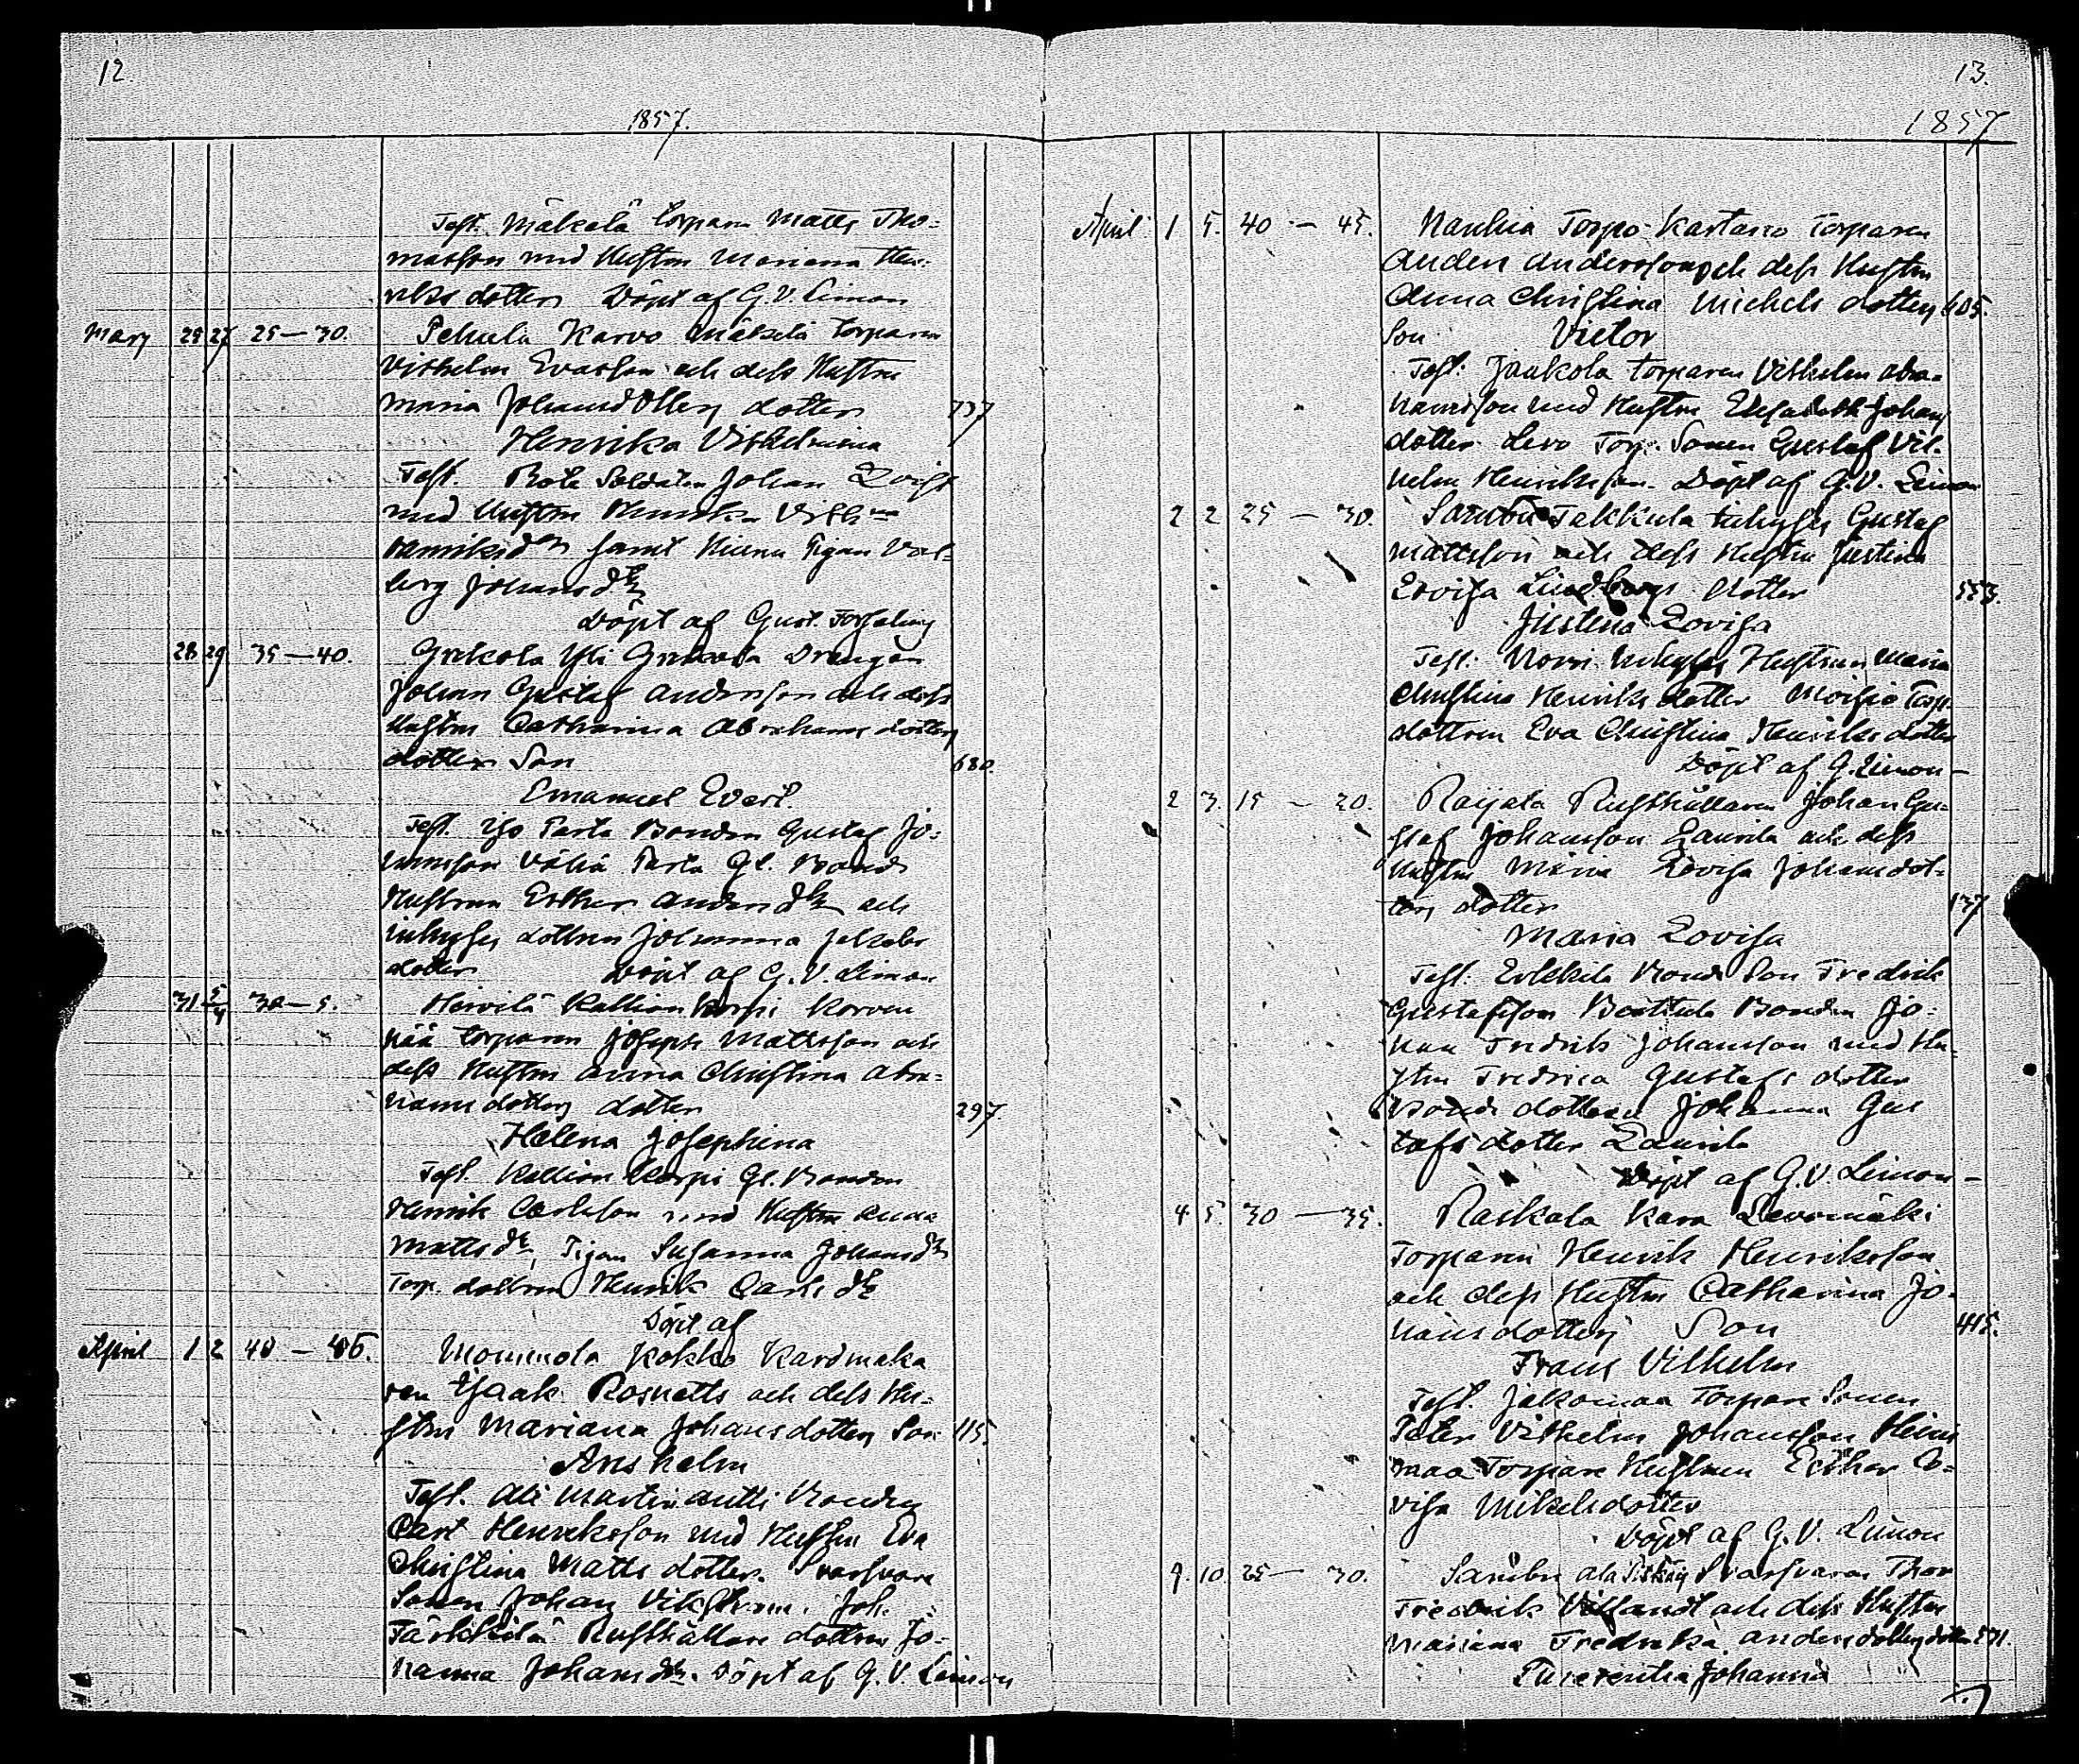 12.
1857.
Test. Mäkelä torparn Matts Tho=
masson med Hustru Mariana Hen=
riks dotter Döpt af G. V. Limon
Mars 25 27 25 — 30. Pehula Karvo Mäkelä torparn
Vilhelm Evasson och dess Hustru
Maria Johansdotters dotter 737
Henrika Vilhelmina
Test. Rote Soldaten Johan Qvist
med Hustru Henrika Vilh
Henriksdr samt Pigan Val=
borg Johansdr
Döpt af Gust. Forselius
28 29 35 — 40. Yli Drengen
Johan Gustaf Andersson och dess
Hustru Catharina Abrahams dotters
dotter Son 680.
Emanuel Evert.
Test. Yso Parta Bonden Gustaf Jo=
hansson Vähä Parta Gl. Bonde
Hustrun Esther Andersdr och
inhyses dottren Johanna Jakobs
dotter Döpt af G. V. Limon
31 5/4 30 — 5. Heivilä Kallion Korpi Korven
pää torparen Joseph Mattsson och
dess Hustru Anna Christina Abra=
hams dotters dotter 297.
Helena Josephina
Test. Kallion Korpi Gl. Bonden
Henrik Carlsson med Hustru Anna
Mattsdr, Pigan Susanna Johansdr
Torp. dottren Carlsdr
Döpt af
April 1 2 40 — 45. Mommola Kokko Kardmaka
ren Isaak Rosnatts och dess Hu=
stru Mariana Johansdotters Son 115.
Anshelm
Test. Ali Martin Antti Bonden
Carl Henriksson med Hustru Eva
Christina Matts dotter. Svarfvare
Sonen Johan Vikström. Joh.
Rusthållare dottren Jo=
hanna Johansdr. Döpt af G. V. Limon
13.
1857
April 1 5. 40 — 45. Nauhia Torpo Kartano Torparen
Anders Andersson och dess Hustru
Anna Christina Michels dotters 605.
Son Victor
Test: Jaakola torparen Vilhelm Abra=
hamsson med Hustru Elisabeth Johans
dotter Levo Torp. Sonen Gustaf Vil=
helm Henriksson. Döpt af G. V. Limon
2 2 25 — 30. Takkula inhyses Gustaf
Mattsson och dess Hustru Justina
Lovisa Lindbergs dotter 553.
Justina Lovisa
Test. inhyses Hustrun Maria
Christina Henriks dotter Moisio Torp.
dottren Eva Christina Henriks dotter
Döpt af G. Limon —
2 3. 15 — 20. Raijala Rusthållaren Johan Gu=
staf Johansson Laurila och dess
Hustru Maria Lovisa Johansdot=
ters dotter 137
Maria Lovisa
Test. Erkkila Bonde Son Fredrik
Gustafsson Bonden Jo=
han Fredrik Johansson med Hu=
stru Fredrica Gustafs dotter
Bonde dottren Johanna Gus
tafs dotter Laurila
Döpt af G. V. Limon —
4 5. 30 — 35. Raskala Kara Levomäki
Torparen Henrik Henriksson
och dess Hustru Catharina Jo=
hans dotters Son 415.
Frans Vilhelm
Test. Jakomaa Torpare Sonen
Peter Vilhelm Johansson Heini
maa Torpare Hustrun Esther Lo=
visa Mikelsdotter
Döpt af G. V. Limon
9. 10. 25 — 30. Ala Svarfvaren Thor
Fredrik och dess Hustru
Mariana Fredrika Andersdotters dotter 571.
Johanna